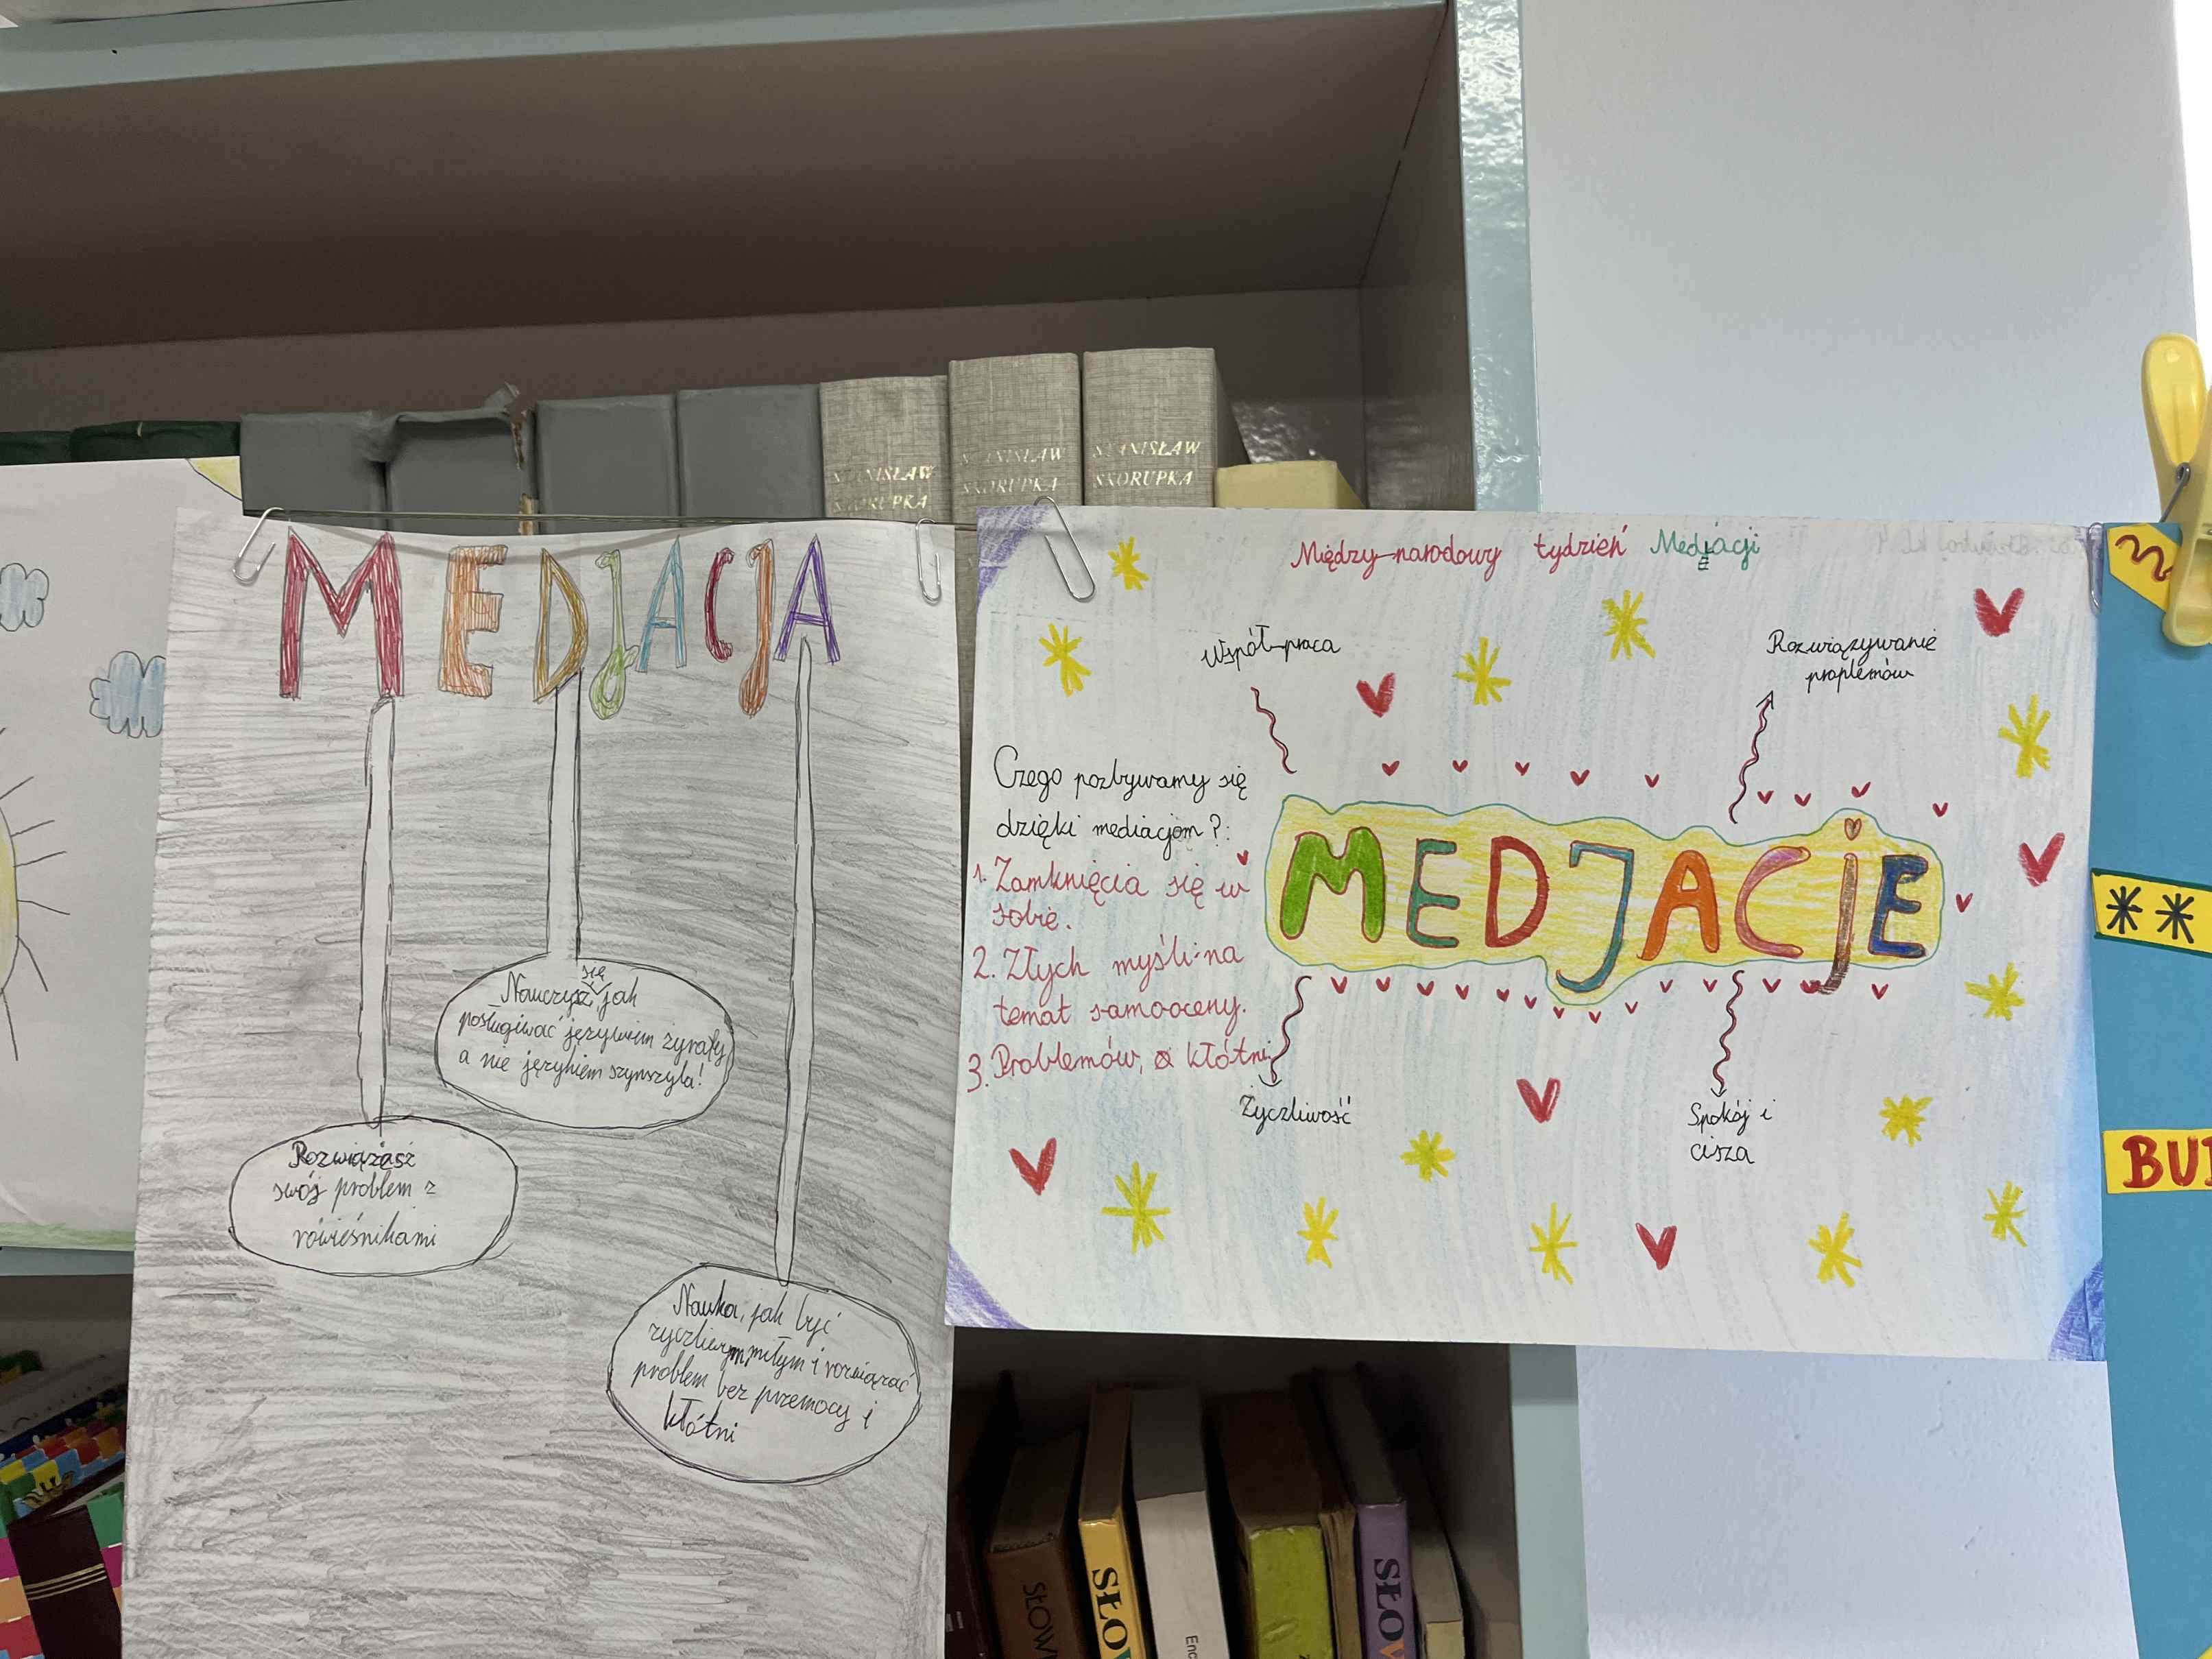 STANISŁAW
SKORUPKA
STANISŁAW
SKORUPKA
STANISŁAW
SKORUPKA
MEDJACJA
się
Nauczysz jak
posługiwać językiem żyrafy
a nie językiem szynszyla!
Rozwiążasz
swój problem z
rówieśnikami
Nauka, jak być
życzliwym, miłym i rozwiązać
problem bez przemocy i
kłótni
Między-narodowy tydzień Medjacji
Współ-praca
Rozwiązywanie
proplemów
Czego pozbywamy się
dzięki mediacjom?:
1. Zamknięcia się w
sobie.
2. Złych myśli na
temat samooceny.
3. Problemów, a kłótni
MEDJACJE
Życzliwość
Spokój i
cisza
BU
SŁOW
SŁO
Enc
SŁOW